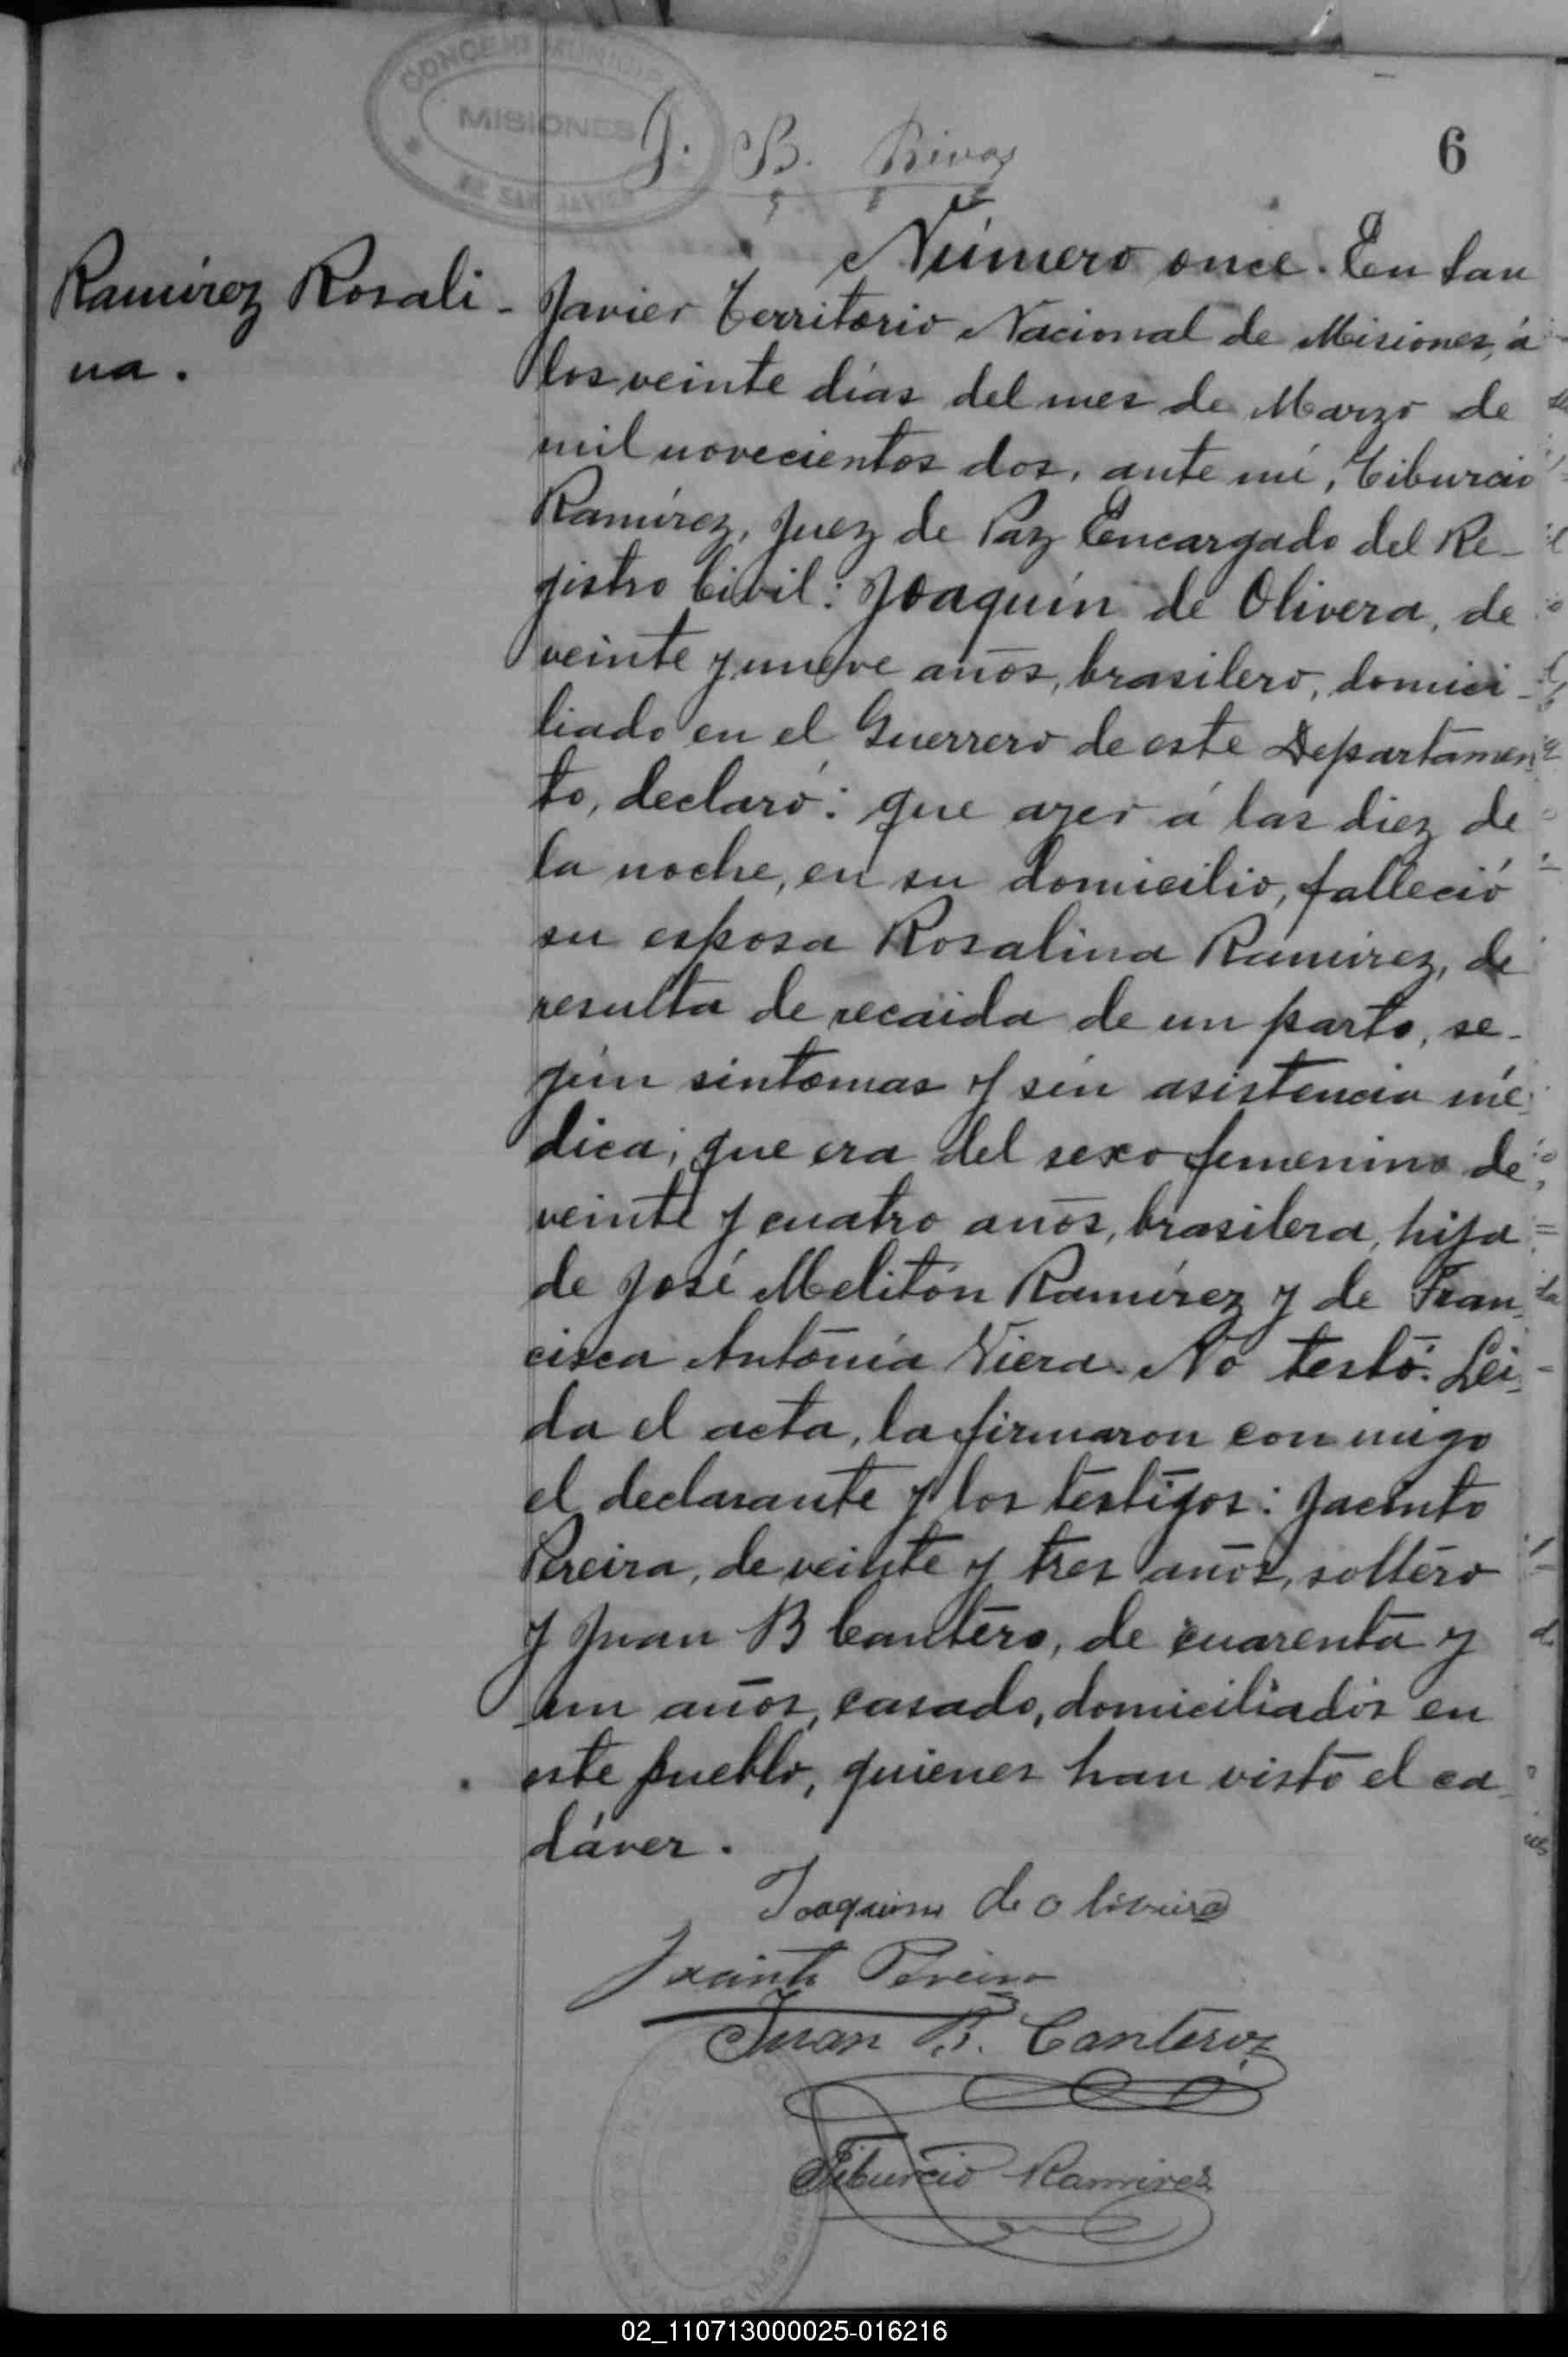 CONCEJO MUNICIPAL
MISIONES
DE SAN JAVIER
J. B. Rivas
6
Ramírez Rosali-
na.
Número once. En San
Javier Territorio Nacional de Misiones, á
los veinte días del mes de Marzo de
mil novecientos dos, ante mí, Tiburcio
Ramírez, Juez de Paz Encargado del Re-
gistro Civil: Joaquín de Olivera, de
veinte y nueve años, brasilero, domici-
liado en el Guerrero de este Departamen-
to, declaró: que ayer á las diez de
la noche, en su domicilio, falleció
su esposa Rosalina Ramírez, de
resulta de recaida de un parto, se-
gún sintomas y sin asistencia mé-
dica; que era del sexo femenino de
veinte y cuatro años, brasilera, hija
de José Melitón Ramírez y de Fran-
cisca Antonia Viera. No testó. Lei-
da el acta, la firmaron con migo
el declarante y los testigos: Jacinto
Pereira, de veinte y tres años, soltero
y Juan B Cantero, de cuarenta y
un años, casado, domiciliados en
este pueblo, quienes han visto el ca-
dáver.
Joaquim de Oliveira
Jacinto Pereira
Juan B. Canteroz
Tiburcio Ramirez
02_110713000025-016216